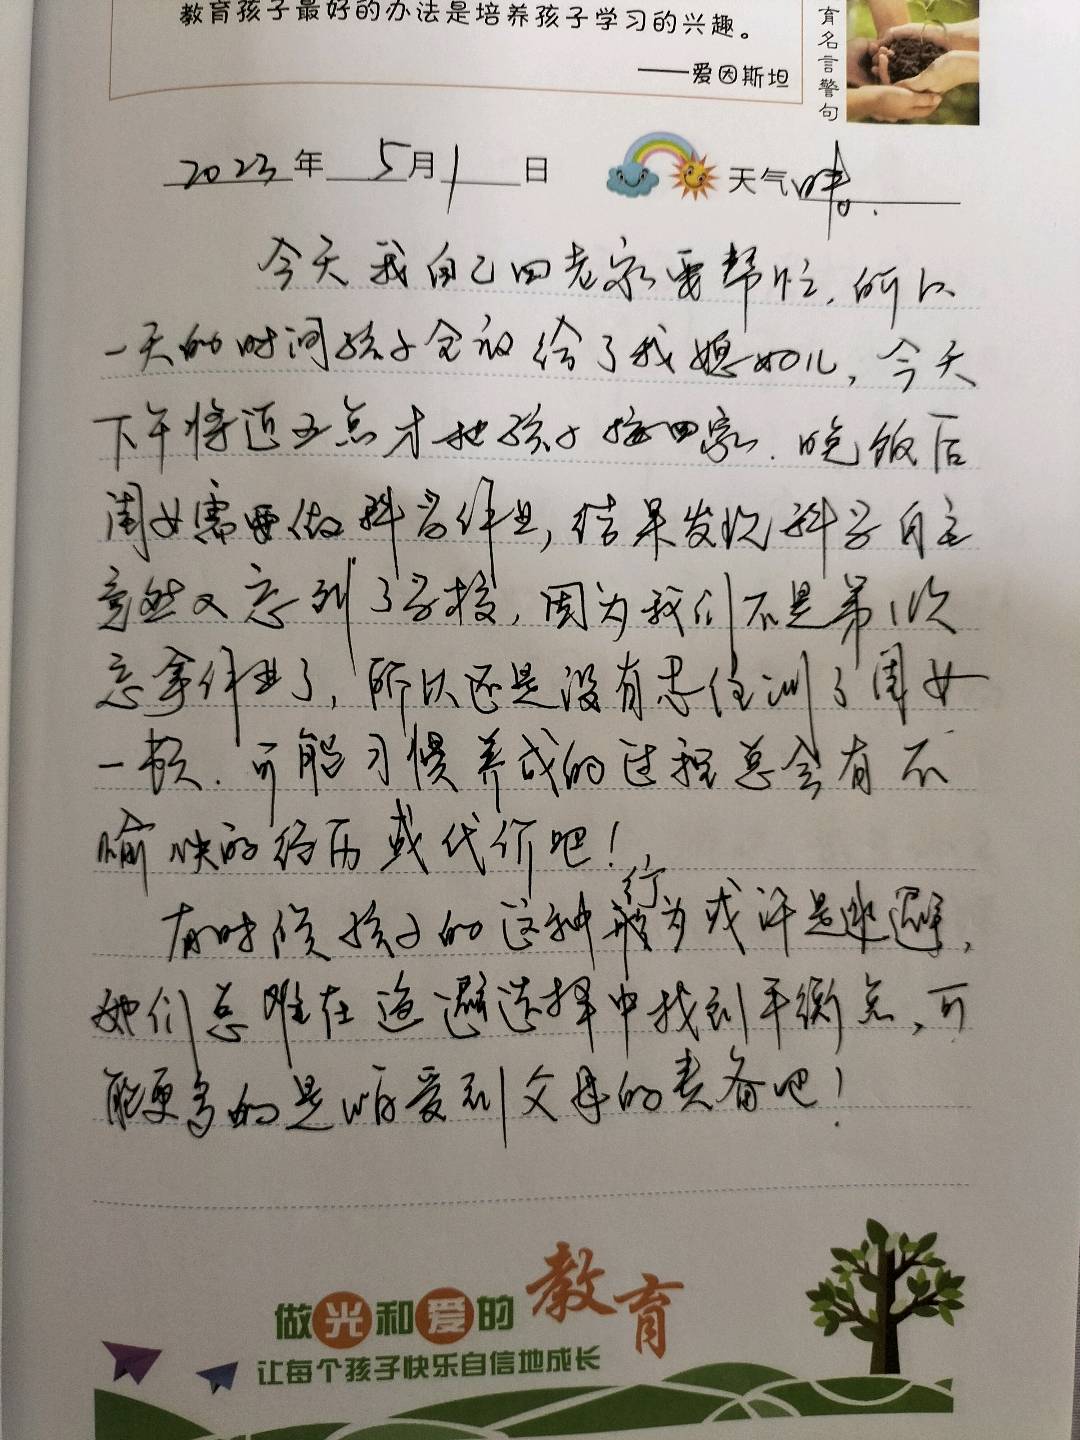 教育孩子最好的办法是培养孩子学习的兴趣。
——爱因斯坦
育名言警句
2023年5月1日 天气 晴.
今天我自己回老家要帮忙,所以
一天的时间孩子全部给了我媳妇儿,今天
下午将近五点才把孩子接回家.晚饭后
闺女需要做科学作业,结果发现科学自主
竟然又忘到了学校,因为我们不是第1次
忘拿作业了,所以还是没有忍住训了闺女
一顿.可能习惯养成的过程总会有不
愉快的经历或代价吧!
有时候孩子的这种行为或许是逃避,
她们总难在逃避选择中找到平衡点,可
能更多的是害爱到父母的责备吧!
做光和爱的教育
让每个孩子快乐自信地成长